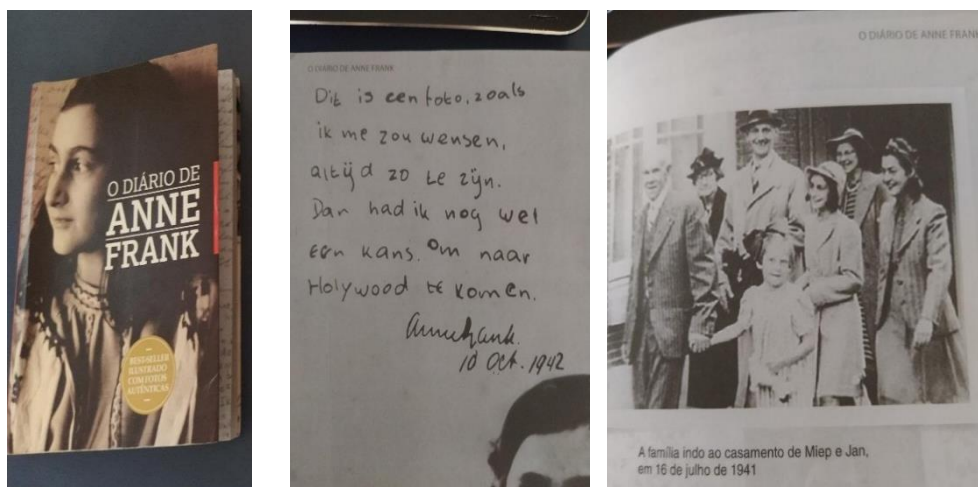 O DIÁRIO DE
ANNE
FRANK
BEST-SELLER
ILUSTRADO
COM FOTOS
AUTÊNTICAS
O DIÁRIO DE ANNE FRANK
Dit is een foto, zoals
ik me zou wensen,
altijd zo te zijn.
Dan had ik nog wel
een kans om naar
Holywood te komen.
AnneFrank.
10 Oct. 1942
O DIÁRIO DE ANNE FRANK
A família indo ao casamento de Miep e Jan,
em 16 de julho de 1941